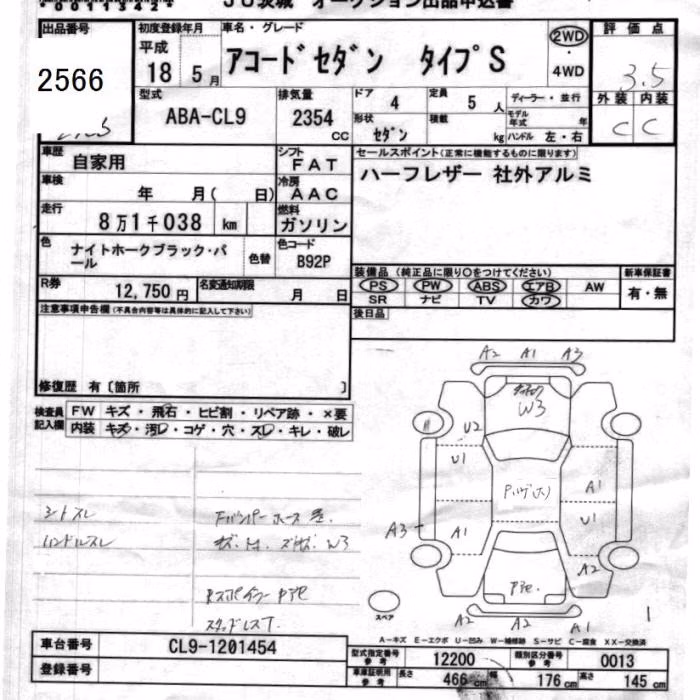 JU茨城 オークション出品申込書
出品番号 初度登録年月 車名・グレード 評価点
2566 平成 18 5月 アコードセダン タイプS 2WD ・ 4WD 3.5
型式 排気量 ドア 4 定員 5人 ディーラー・並行 外装 内装
ABA-CL9 2354 CC 形状 セダン 積載 kg モデル年式 年 ハンドル 左・右 C C
車歴 自家用 シフト FAT セールスポイント(正常に機能するものに限ります)
車検 年 月( 日) 冷房 AAC ハーフレザー 社外アルミ
走行 8万1千038 km 燃料 ガソリン
色 ナイトホークブラック・パール 色替 色コード B92P
R券 12,750円 名変通知期限 月 日 装備品(純正品に限り○をつけてください) 新車保証書
PS PW ABS エアB AW 有・無
SR ナビ TV カワ
注意事項申告欄(不具合内容等は具体的に記入して下さい) 後日品
修復歴 有〔箇所 〕
検査員記入欄 FW キズ・飛石・ヒビ割・リペア跡・×要
内装 キズ・汚レ・コゲ・穴・スレ・キレ・破レ
A2 A1 A3
W3
U2
U1
A1
U1
A3
A1
A2
A2 A2 A1
シートスレ
ハンドルスレ
W3
スタッドレスT.
スペア
1
A-キズ E-エクボ U-凹み W-補修跡 S-サビ C-腐食 XX-交換済
車台番号 CL9-1201454 型式指定番号 参考 12200 類別区分番号 参考 0013
登録番号 車庫証明用 参考 長さ 466cm 幅 176cm 高さ 145cm